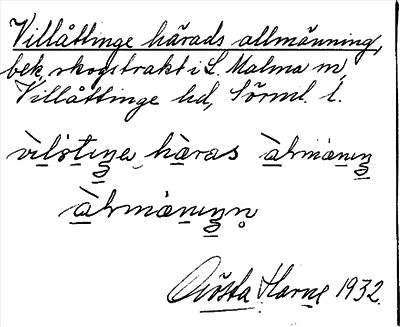 Villåttinge härads allmänning,
bek. skogstrakt i L. Malma sn,
Villåttinge hd, Sörml. l.
vìlstiŋe hæras àlmäniŋ
àlmäniŋn̥
Gösta Harne 1932.